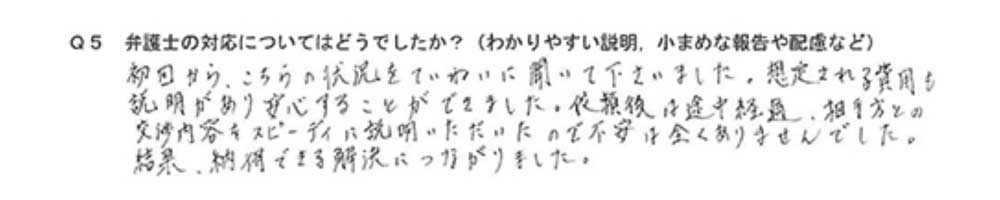 Q5 弁護士の対応についてはどうでしたか？（わかりやすい説明，小まめな報告や配慮など）
初回から、こちらの状況をていねいに聞いて下さいました。想定される費用も
説明があり安心することができました。依頼後は途中経過、相手方との
交渉内容をスピーディに説明いただいたので不安は全くありませんでした。
結果、納得できる解決につながりました。